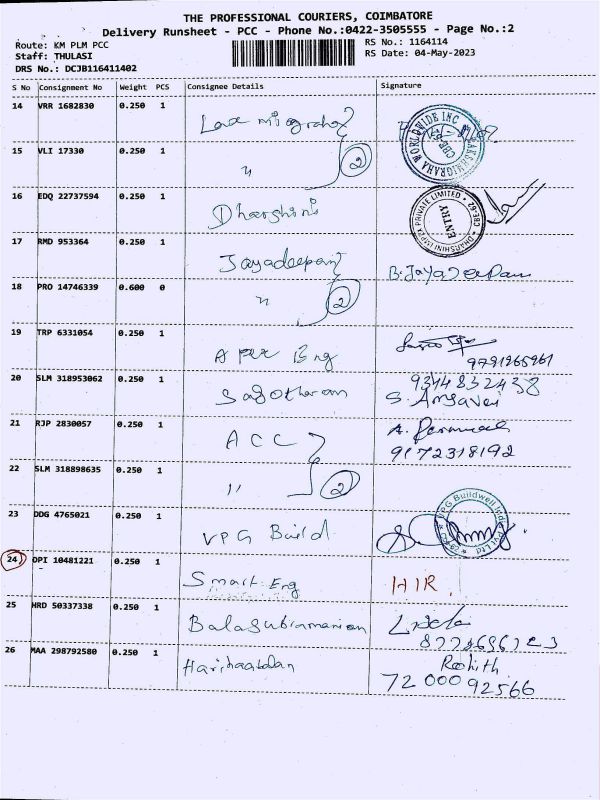 THE PROFESSIONAL COURIERS, COIMBATORE
Delivery Runsheet - PCC - Phone No.:0422-3505555 - Page No.:2
Route: KM PLM PCC
RS No.: 1164114
Staff: THULASI
RS Date: 04-May-2023
DRS No.: DCJB116411402
S No Consignment No Weight PCS Consignee Details Signature
14 VRR 1682830 0.250 1
WORLDWIDE INC
15 VLI 17330 0.250 1 " 2
16 EDQ 22737594 0.250 1 Dharshini
DHARSHINI IMPEX PRIVATE LIMITED
ENTRY
17 RMD 953364 0.250 1 Jayadeepan B. Jayadeepan
18 PRO 14746339 0.600 0 " 2
19 TRP 6331054 0.250 1 Apex Eng
9791265961
20 SLM 318953062 0.250 1 9344832438
21 RJP 2830057 0.250 1 ACC
9172318192
22 SLM 318898635 0.250 1 " 2
23 DDG 4765021 0.250 1 VPG Build
VPG Buildwell India Pvt Ltd
24 OPI 10481221 0.250 1 Smart Eng HIR
25 HRD 50337338 0.250 1 Balasubramanian
26 MAA 298792580 0.250 1 Rohith
72000 92566